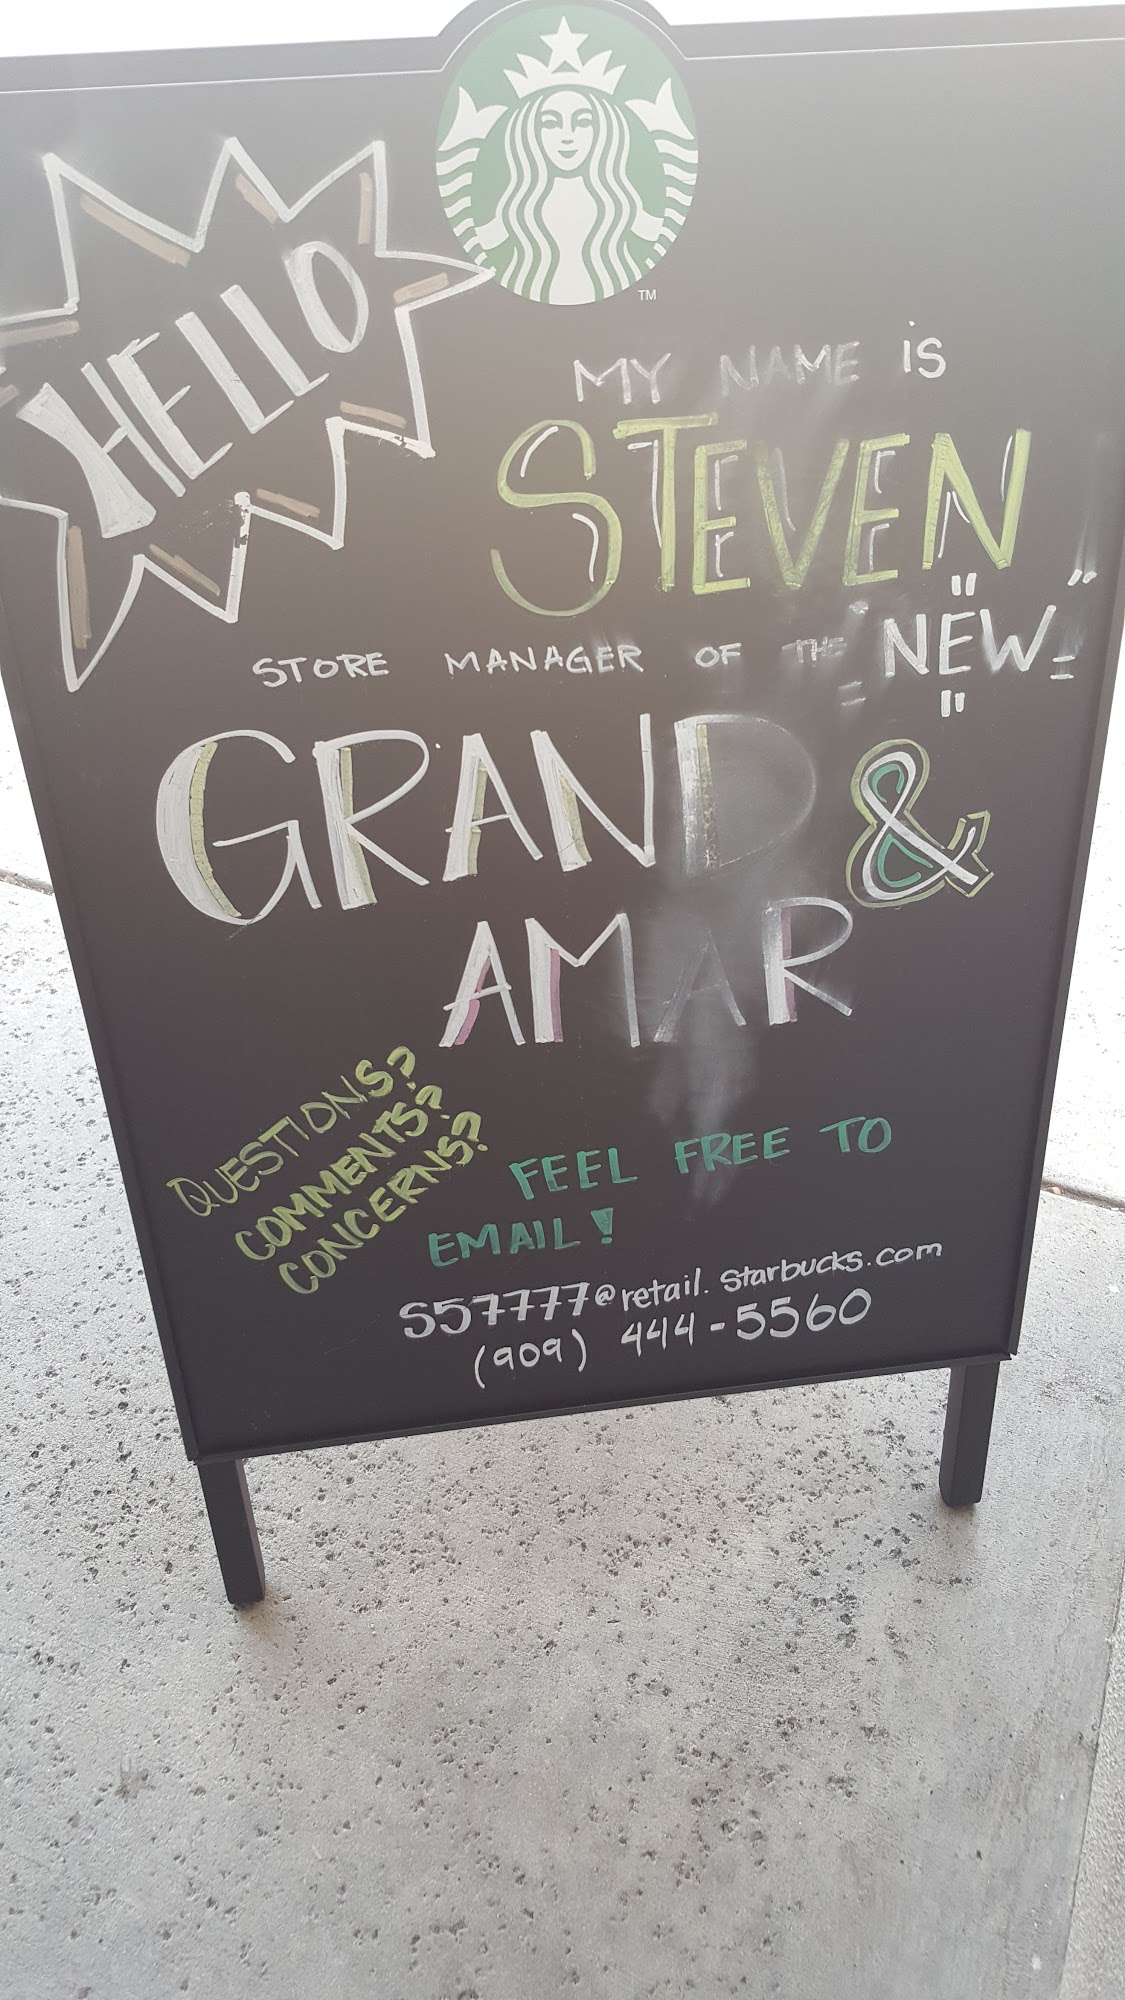 HELLO
TM
MY NAME IS
STEVEN
STORE MANAGER OF THE "NEW"
GRAND &
AMAR
QUESTIONS?
COMMENTS?
CONCERNS?
FEEL FREE TO
EMAIL!
S57777@retail.starbucks.com
(909) 444-5560